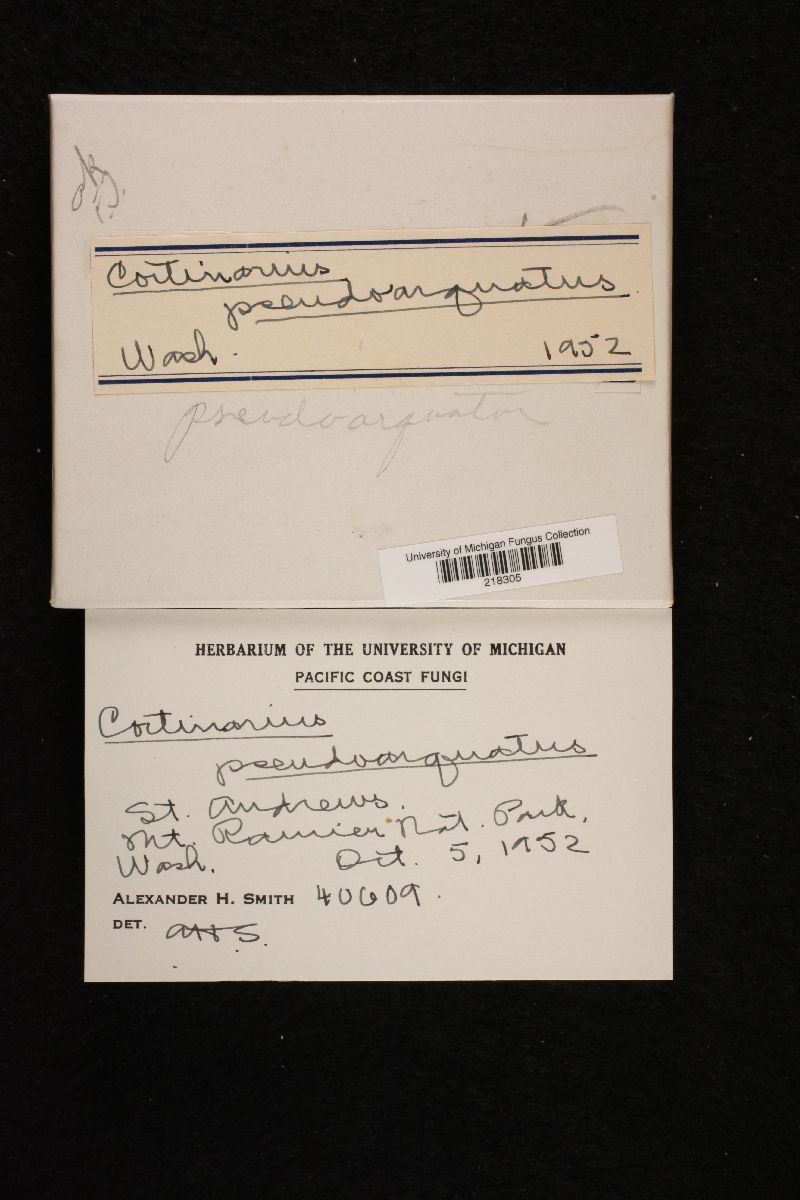 Cortinarius
pseudoarquatus
Wash. 1952
pseudoarquatus
University of Michigan Fungus Collection
218305
HERBARIUM OF THE UNIVERSITY OF MICHIGAN
PACIFIC COAST FUNGI
Cortinarius
pseudoarquatus
St. Andrews.
Mt. Rainier Nat. Park,
Wash. Oct. 5, 1952
ALEXANDER H. SMITH 40609.
DET. AHS.